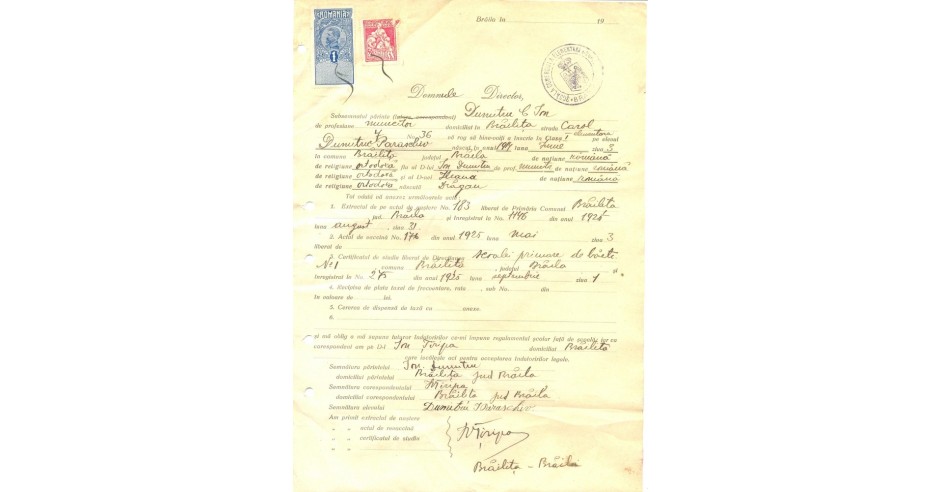 ROMANIA
1
Brăila în 19
Domnule Director,
Subsemnatul părinte Dumitru C Ion
de profesiune muncitor domiciliat în Brăilița strada Carol
No. 36 vă rog să bine-voiți a înscrie în clasa I pe elevul
Dumitru Paraschiv născut în anul luna Iunie ziua 3
în comuna Brăilița județul Brăila de națiune română
de religiune ortodoxă fiu al D-lui Ion Dumitru de prof. muncitor de națiune română
de religiune ortodoxă și al D-nei Ileana de națiune română
de religiune ortodoxă născută Drăgan
Tot odată vă anexez următoarele acte:
1. Extractul de pe actul de naștere No. 183 liberat de Primăria Comunei Brăilița
jud. Brăila și înregistrat la No. 1146 din anul 1925
luna august ziua 31
2. Actul de vaccină No. din anul 1925 luna mai ziua 3
liberat de
3. Certificatul de studiu liberat de Direcțiunea școalei primare de băeți
No 1 comuna Brăilița județul Brăila
înregistrat la No. 27 din anul 1925 luna septembrie ziua 1
4. Recipisa de plata taxei de frecventare, rata sub No. din
în valoare de lei.
5. Cererea de dispensă de taxă cu anexe.
6.
și mă oblig a mă supune tuturor îndatoririlor ce-mi impune regulamentul școlar față de școală; iar ca
corespondent am pe D-l Ion Țiripa domiciliat Brăilița
care iscălește act pentru acceptarea îndatoririlor legale.
Semnătura părintelui Ion Dumitru
domiciliul părintelui Brăilița jud Brăila
Semnătura corespondentului Țiripa
domiciliul corespondentului Brăilița jud Brăila
Semnătura elevului Dumitru Paraschiv
Am primit extractul de naștere
„ „ actul de revaccină
„ „ certificatul de studiu
Țiripa
Brăilița - Brăila